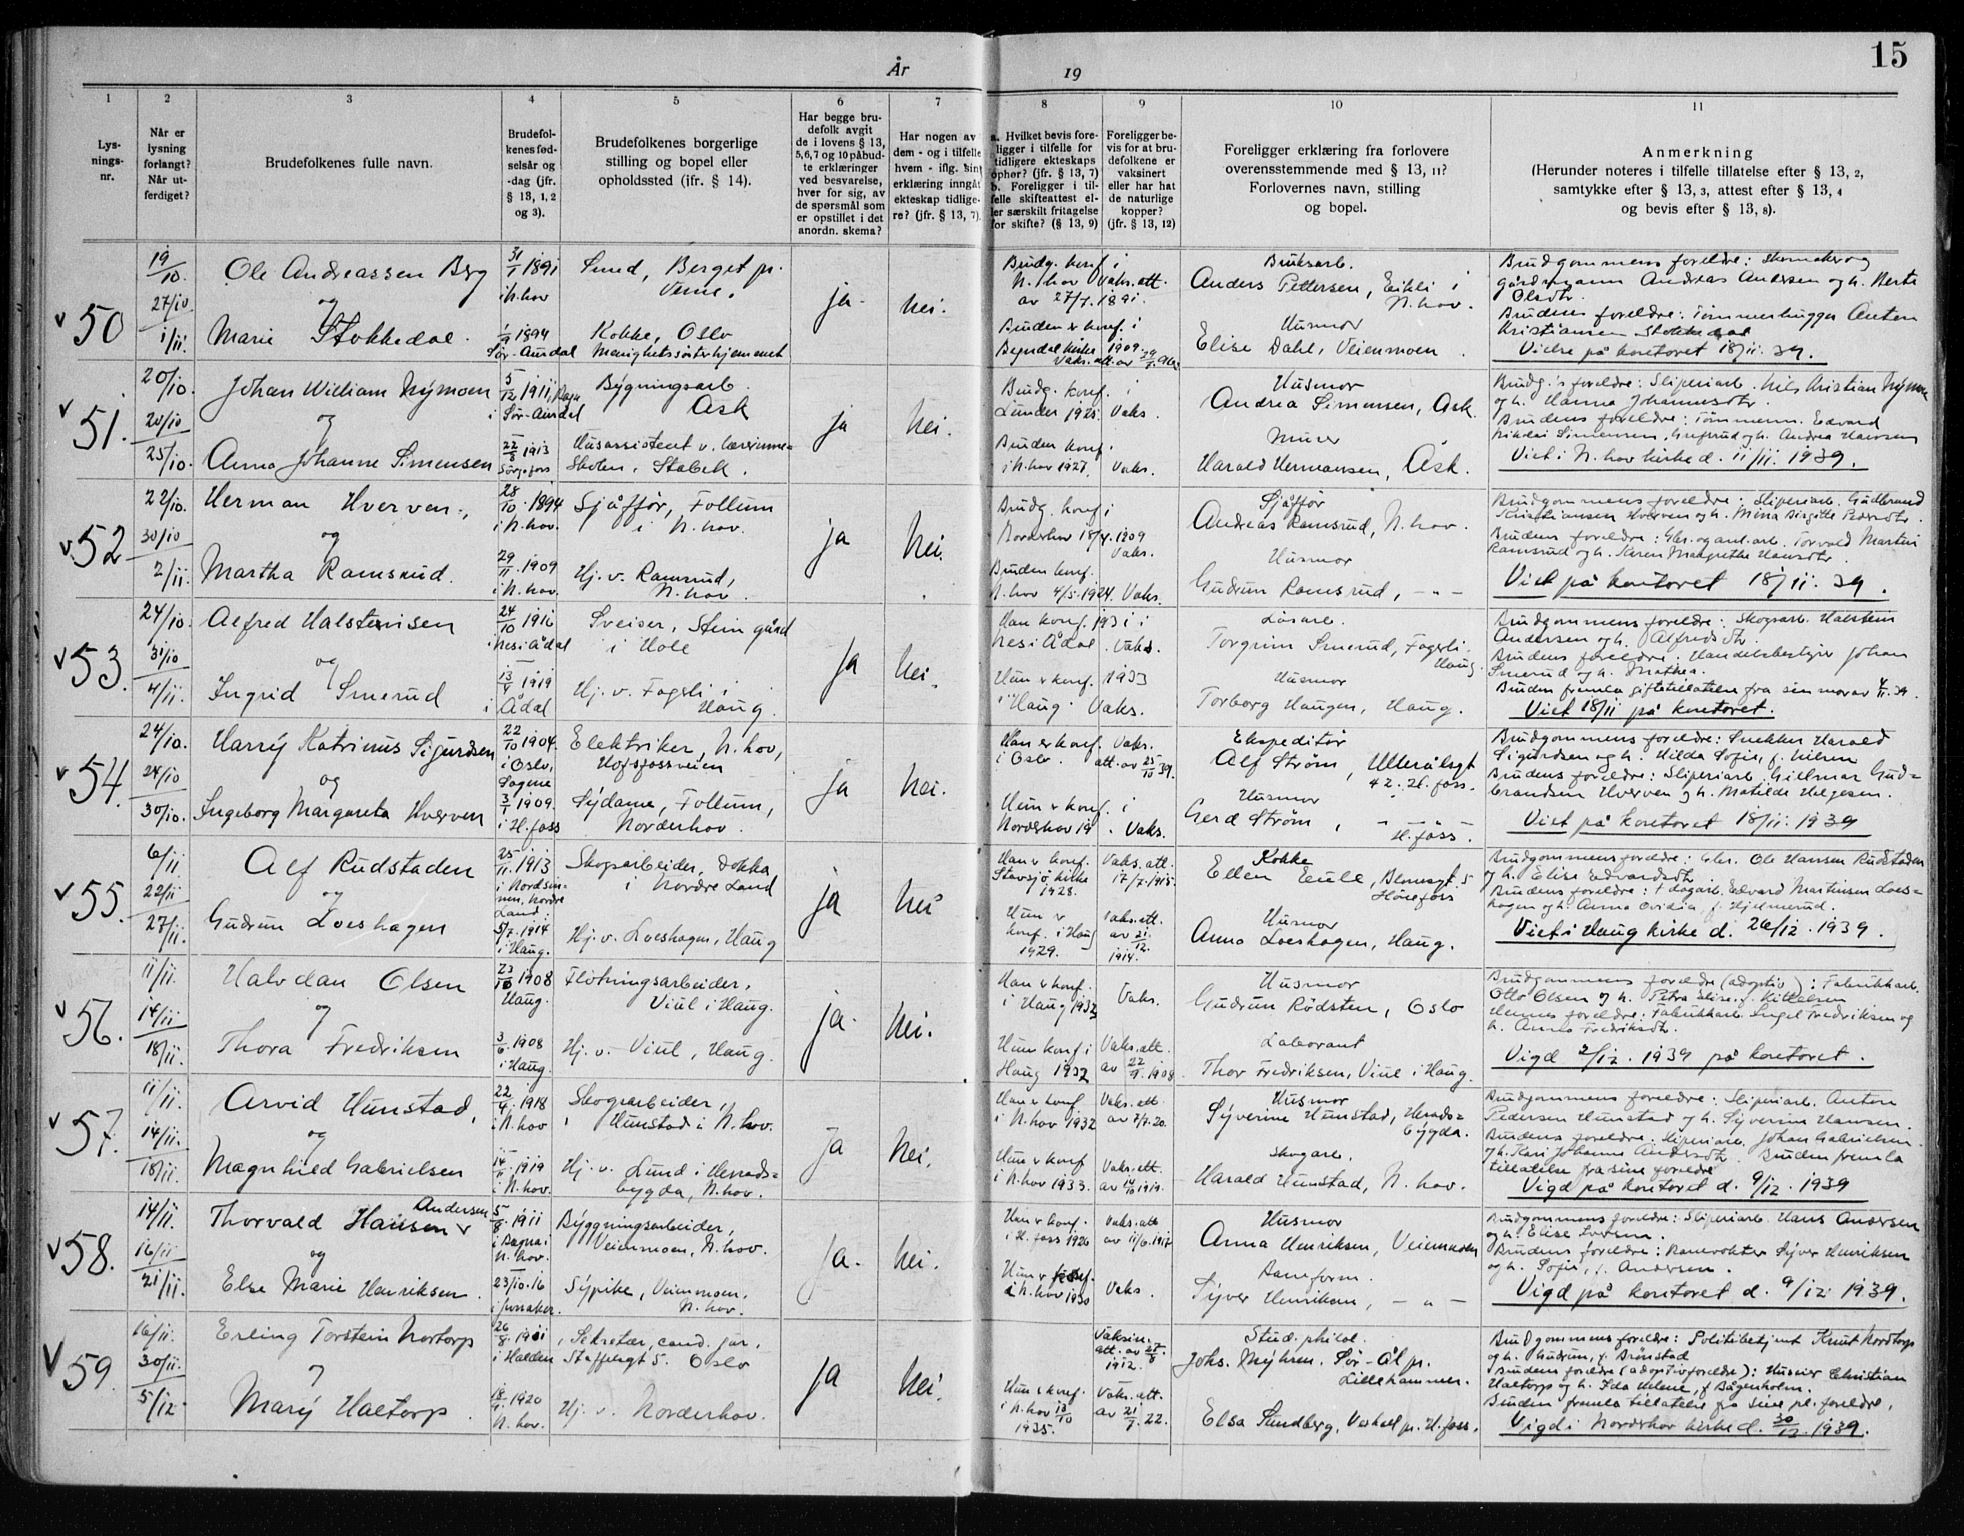 År
19
15
1
2
3
4
5
6
7
8
9
10
11
Lys-
nings-
nr.
Når er
lysning
forlangt?
Når ut-
ferdiget?
Brudefolkenes fulle navn.
Brudefol-
kenes fød-
selsår og
-dag (jfr.
§ 13, 1, 2
og 3).
Brudefolkenes borgerlige
stilling og bopel eller
opholdssted (ifr. § 14).
Har begge bru-
defolk avgit
de i lovens § 13,
5,6,7 og 10 påbud-
te erklæringer
ved besvarelse,
hver for sig, av
de spørsmål som
er opstillet i det
anordn. skema?
Har nogen av
dem - og i tilfelle
hvem - iflg. sin
erklæring inngått
ekteskap tidlige-
re? (jfr. § 13, 7).
a. Hvilket bevis fore-
ligger i tilfelle for
tidligere ekteskaps
ophør? (jfr. § 13, 7)
b. Foreligger i til-
felle skifteattest el-
ler særskilt fritagelse
for skifte? (§ 13, 9)
Foreligger be-
vis for at bru-
defolkene er
vaksinert
eller har hat
de naturlige
kopper?
(jfr. § 13, 12)
Foreligger erklæring fra forlovere
overensstemmende med § 13, 11?
Forlovernes navn, stilling
og bopel.
Anmerkning
(Herunder noteres i tilfelle tillatelse efter § 13, 2,
samtykke efter § 13, 3, attest efter § 13, 4
og bevis efter § 13, 8).
v 50
19/10
27/10
1/11
Ole Andreassen Berg
og
Marie Stokkedal.
31/1 1891
i N.hov
1894
Sør-Aurdal
Smed, Berget pr.
Veme.
Kokke, Oslo
Menighetssøsterhjemmet
ja
nei.
Brudg. konf. i
N.hov Vaks.att.
av 27/7.1891.
Bruden er konf. i
Begndal kirke 1909.
Bruksarb.
Anders Pettersen, Eikli i
N.hov.
Husmor
Elise Dahl, Veienmoen
Brudgommens foreldre: Skomaker og
gårdmann Andreas Andersen og h. Berte
Olsdtr.
Brudens foreldre: Tømmerhugger Anton
Kristiansen Stokkedal
Viet på kontoret 18/11.39.
v 51.
20/10.
20/10
25/10.
Johan William Nymoen
og
Anna Johanne Simensen
5/12 1911,
i Sør-Aurdal
22/8 1913
Bygningsarb.
Ask
Husassistent v. lærerinne-
skolen, Stabek.
ja
nei.
Brudg. konf. i
Lunder 1925. Vaks.
Bruden konf.
i N.hov 1927. Vaks.
Husmor
Andrea Simensen, Ask.
Murer
Harald Hermansen, Ask.
Brudg.'s foreldre: Sliperiarb. Nils Kristian Nymoen
og h. Hanna Johannesdtr.
Brudens foreldre: Tømmerm. Edvard
Nikolai Simensen, og h. Andrea Hansen
Viet i N.hov kirke d. 11/11.1939.
v 52
22/10.
30/10
2/11.
Herman Hverven,
og
Martha Ramsrud.
28/10.1894
i N.hov.
29/11.1909
i N.hov.
Sjåffør, Follum
i N.hov.
Hj. v. Ramsrud,
N.hov.
ja
nei.
Brudg. konf. i
Norderhov 18/4.1909
Vaks.
Bruden konf.
N.hov 4/5.1924. Vaks.
Sjåffør
Andreas Ramsrud, N.hov.
Husmor
Gudrun Ramsrud, - " -
Brudgommens foreldre: Sliperiarb. Gudbrand
Kristiansen Hverven og h. Mina Birgitte Pedersdtr.
Brudens foreldre: Torvald Martin
Ramsrud og h. Karen Margrethe Hansdtr.
Viet på kontoret 18/11.39.
v 53.
24/10.
31/10
4/11.
Alfred Halstensen
og
Ingrid Smerud
24/10 1916
i Nes i Ådal
13/9 1919
i Ådal
Sveiser, Stein gård
i Hole
Hj. v. Fagerli i
Haug.
ja
nei.
Han konf. 1931 i
Nes i Ådal. Vaks.
Hun er konf. 1933
i Haug. Vaks.
Løsarb.
Torgrim Smerud, Fagerli
Haug.
Husmor
Torborg Haugen, Haug.
Brudgommens foreldre: Skogarb. Halstein
Andersen og h. Alfredsdtr.
Brudens foreldre: Handelsbestyrer Johan
Smerud og h. Mathea.
Bruden fremla giftetillatelse fra sin mor av 4/11.39.
Viet 18/11 på kontoret.
v 54.
24/10.
24/10
30/10.
Harry Katrinus Sigurdsen
og
Ingeborg Margareta Hverven
22/10 1904.
i Oslo,
Sagene
3/1 1909.
i H.foss
Elektriker, N.hov,
Hofsfossveien
Sydame, Follum,
Norderhov.
ja
nei.
Han er konf.
i Oslo.
Vaks.
att. av 25/10 39.
Hun er konf. i
Norderhov 19 . Vaks.
Ekspeditør
Alf Strøm, Ullerålsgt
42. H.foss.
Husmor
Gerd Strøm, - " -
H.foss.
Brudgommens foreldre: Snekker Harald
Sigurdsen og h. Hilda Sofie, f. Nilsen
Brudens foreldre: Sliperiarb. Hjelmar Gud-
brandsen Hverven og h. Matilde Helgesen.
Viet på kontoret 18/11.1939
v 55.
6/11
22/11
27/11.
Alf Rudstaden
og
Gudrun Loeshagen
25/11.1913
i Nordsin-
nen, Nordre
Land.
5/7.1914
i Haug.
Skogarbeider, Dokka
i Nordre Land
Hj. v. Loeshagen, Haug
ja
nei
Han er konf.
Stavsjø kirke
1928.
Vaks.att.
17/7.1915.
Hun er
konf. i Haug
1929.
Vaks.att.
av 21/12
1914.
Kokke
Ellen Eull, Blomsgt. 5
Hønefoss
Husmor
Anna Loeshagen, Haug.
Brudgommens foreldre: Gbr. Ole Hansen Rudstaden
og h. Elise Edvardsdtr.
Brudens foreldre: † Skogarb. Edvard Martinsen Loes-
hagen og h. Anna Ovidia f. Hjelmerud.
Viet i Haug kirke d. 26/12.1939.
v 56.
11/11.
14/11
18/11.
Halvdan Olsen
og
Thora Fredriksen
23/10 1908
Haug.
3/6.1908
i Haug.
Fløtningsarbeider,
Viul i Haug.
Hj. v. Viul, Haug.
ja.
nei.
Han er konf.
i Haug 1932
Vaks.
Hun konf. i
Haug 1932
Vaks.att.
av 22/9.1908.
Husmor
Gudrun Rødsten, Oslo
Laborant
Thor Fredriksen, Viul i Haug.
Brudgommens foreldre (adoptiv): Fabrikkarb.
Otto Olsen og h. Petra Elise f. Kittelsen
Hennes foreldre: Fabrikkarb. Engel Fredriksen og
h. Anna Fredriksdtr.
Vigd 2/12.1939 på kontoret.
v 57.
11/11.
14/11.
18/11.
Arvid Hunstad,
og
Magnhild Gabrielsen
22/4.1918
i N.hov
14/11.1919
i N.hov.
Skogarbeider,
Hunstad i N.hov.
Hj. v. Lund i Herads-
bygda, N.hov.
ja
nei.
Han er konf.
i N.hov 1932
Vaks.att.
av 7/7.20.
Hun er konf
i N.hov 1933.
Vaks.att.
av 14/10 1919.
Husmor
Syverine Hunstad, Herads-
bygda.
Skogarb.
Harald Hunstad, N.hov.
Brudgommens foreldre: Sliperiarb. Anton
Pedersen Hunstad og h. Syverine Hansen.
Brudens foreldre: Sliperiarb. Johan Gabrielsen
og h. Kari Johanne Andersdtr. Bruden fremla
tillatelse fra sine foreldre
Vigd på kontoret d. 9/12.1939
v 58.
14/11.
16/11
21/11.
Andersen
Thorvald Hansen v
og
Else Marie Henriksen.
5/8.1911
N.hov.
23/10.16
i Jevnaker.
Byggningsarbeider,
Veienmoen, N.hov.
Sypike, Veienmoen,
N.hov.
ja.
nei.
Han er konf.
i H.foss 1926
Vaks.att
av 11/6.1917
Hun er konf.
i N.hov 1930
Vaks.
Husmor
Anna Henriksen, Veienmoen
Baneform.
Syver Henriksen, - " -
Brudgommens foreldre: Sliperiarb. Hans Andersen
og h. Elise Iversen.
Brudens foreldre: Banevokter Syver Henriksen
og h. Sofie, f. Andersen.
Vigd på kontoret d. 9/12 1939.
v 59.
16/11.
30/11.
5/12.
Erling Torstein Nortorp
og
Mary Haltorp.
26/8.1911
i Halden
18/9 1920
N.hov.
Sekretær, cand. jur,
Staffeldtgt 5. Oslo
Hj. v. Norderhov.
ja
nei.
Vaksin.
att. av 27/8
1912.
Hun er konf.
i N.hov 13/10
1935.
Vaks.att.
av 21/7.22.
Stud. philol.
Johs. Myhren. Sør-Ål pr.
Lillehammer.
Elsa Sundberg, Vakall pr. H.foss.
Brudgommens foreldre: Politibetjent Knut Nordtorp
og h. Gudrun, f. Bønstad
Brudens foreldre (adoptivforeldre): Huseier Christian
Haltorp og h. Ida Helene, f. Bagenholm.
Bruden fremla tillatelse fra sine pl. foreldre.
Vigd i Norderhov kirke d. 30/12.1939.